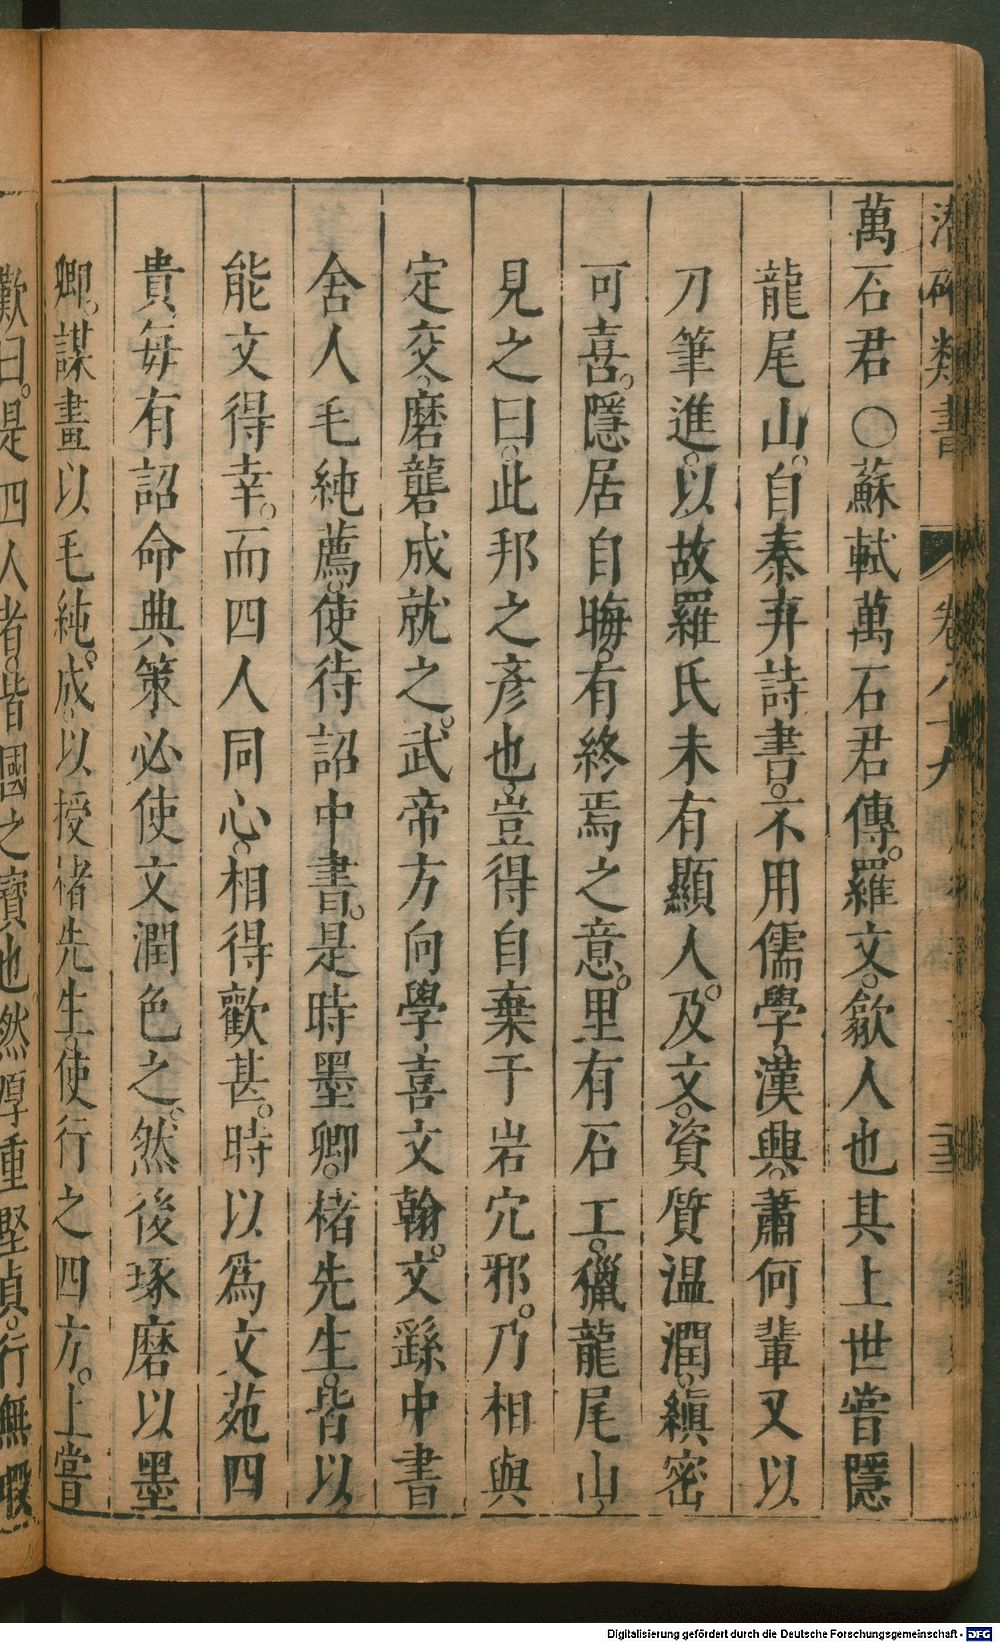 潛確類書 卷八十九 二十三
萬石君○蘇軾萬石君傳。羅文。歙人也其上世嘗隱
龍尾山。自秦弃詩書。不用儒學。漢興。蕭何輩又以
刀筆進。以故羅氏未有顯人。及文。資質溫潤。縝密
可喜。隱居自晦。有終焉之意。里有石工。獵龍尾山。
見之曰。此邦之彥也。豈得自棄于岩穴邪。乃相與
定交。磨礲成就之。武帝方向學。喜文翰。文繇中書
舍人毛純薦。使待詔中書。是時墨卿。楮先生。皆以
能文得幸。而四人同心。相得歡甚。時以爲文苑四
貴每有詔命典策。必使文潤色之。然後琢磨以墨
卿。謀畫以毛純。成以授褚先生。使行之四方。上嘗
歎曰。是四人者。皆國之寶也。然厚重堅貞。行無瑕
Digitalisierung gefördert durch die Deutsche Forschungsgemeinschaft - DFG